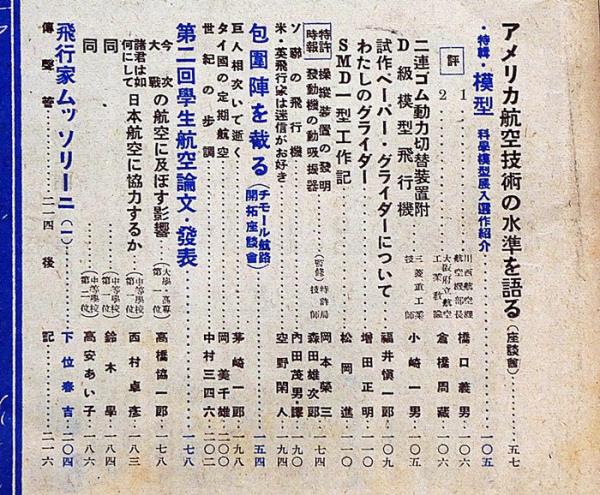 アメリカ航空技術の水準を語る(座談會)…五七
・特輯・模型 科學模型展入選作紹介…一〇五
評 1 川西航空機航空機部長 橋口義男…一〇六
2 大阪府立航空工業教諭 倉橋周藏…一〇六
二連ゴム動力切替装置附D級模型飛行機 三菱重工業技師 小崎一男…一〇五
試作ペーパー・グライダーについて…福井愼一郎…一〇九
わたしのグライダー…増田正明…一一〇
SMD―1型工作記…松岡進…一一〇
特許時報 操縱装置の發明 發動機の動吸振器 (監修)特許局技師 岡本榮三 森田雄次郎…七四
ソ聯の飛行機…内田茂男・譯…九〇
米・英飛行家は迷信がお好き…空野閑人…九四
包圍陣を截る(チモール航路開拓座談會)…一五四
巨人相次いで逝く…茅崎一郎…一九八
タイ國の定期航空…岡美千雄…二〇〇
世紀の歩調…中村三四六…二〇二
第二回學生航空論文・發表…一七八
今次大戰の航空に及ぼす影響(大學・高專第一位)高橋協一郎…一七八
諸君は如何にして日本航空に協力するか(中等學校第一位)西村卓彦…一八三
同(中等學校第二位)鈴木學…一八四
同(中等學校第二位)高安あい子…一八六
飛行家ムッソリーニ(一)…下位春吉…二〇四
傳聲管…二一四 後記…二一六